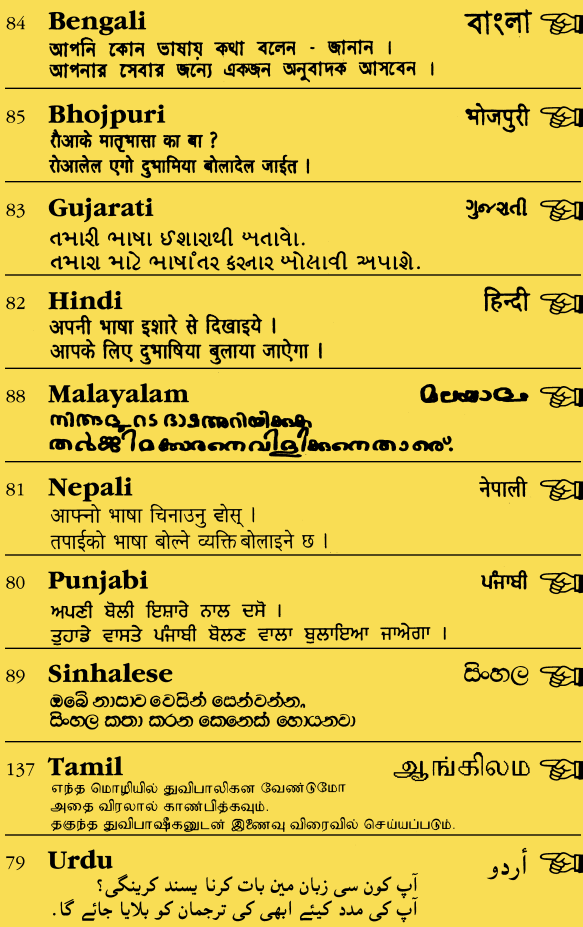 84 Bengali বাংলা
আপনি কোন ভাষায় কথা বলেন - জানান ।
আপনার সেবার জন্যে একজন অনুবাদক আসবেন ।
85 Bhojpuri भोजपुरी
रौआके मातृभासा का बा ?
रोआलेल एगो दुभामिया बोलादेल जाईत ।
83 Gujarati ગુજરાતી
તમારી ભાષા ઈશારાથી બતાવો.
તમારા માટે ભાષાંતર કરનાર બોલાવી અપાશે.
82 Hindi हिन्दी
अपनी भाषा इशारे से दिखाइये ।
आपके लिए दुभाषिया बुलाया जाऐगा ।
88 Malayalam
81 Nepali नेपाली
आफ्नो भाषा चिनाउनु होस् ।
तपाईको भाषा बोल्ने व्यक्ति बोलाइने छ ।
80 Punjabi ਪੰਜਾਬੀ
ਅਪਣੀ ਬੋਲੀ ਇਸ਼ਾਰੇ ਨਾਲ ਦਸੋ ।
ਤੁਹਾਡੇ ਵਾਸਤੇ ਪੰਜਾਬੀ ਬੋਲਣ ਵਾਲਾ ਬੁਲਾਇਆ ਜਾਐਗਾ ।
89 Sinhalese සිංහල
ඔබේ භාෂාව වෙසින් පෙන්වන්න,
සිංහල කතා කරන කෙනෙක් හොයනවා
137 Tamil ஆங்கிலம
எந்த மொழியில் துவிபாலிகன வேண்டுமோ
அதை விரலால் காண்பிக்கவும்.
தகுந்த துவிபாஷீகனுடன் இணைவு விரைவில் செய்யப்படும்.
79 Urdu أردو
آپ کون سی زبان مین بات کرنا پسند کرینگی؟
آپ کی مدد کیئے ابھی کی ترجمان کو بلایا جائے گا.